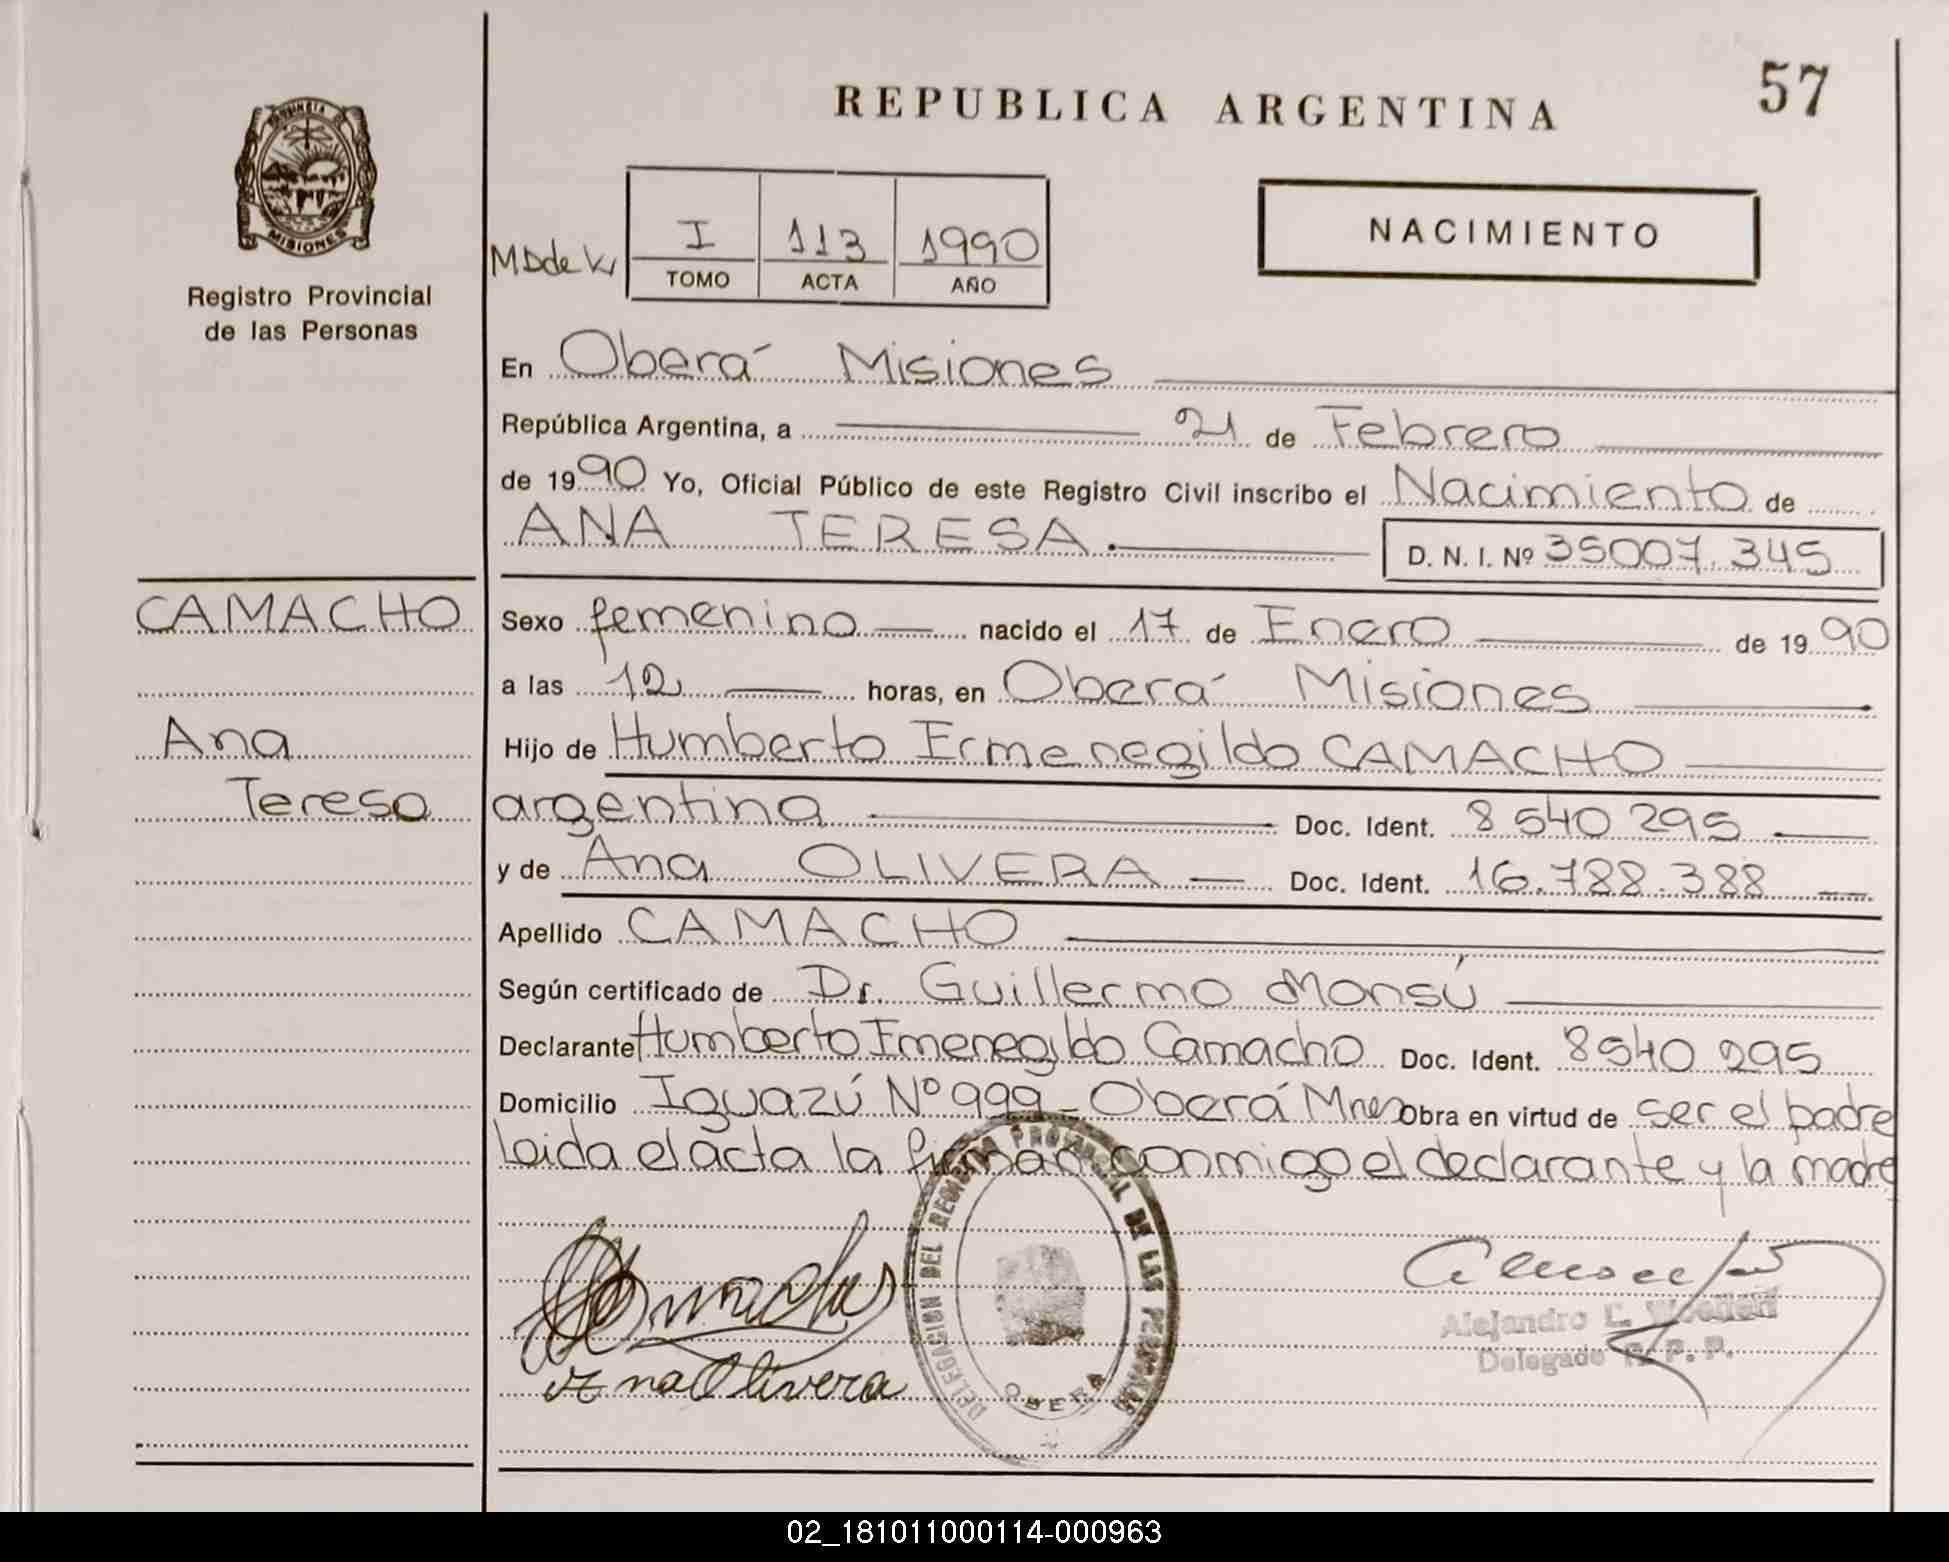 REPUBLICA ARGENTINA
57
MISIONES
Registro Provincial
de las Personas
I 113 1990
TOMO ACTA AÑO
NACIMIENTO
En Oberá Misiones
República Argentina, a 21 de Febrero
de 1990 Yo, Oficial Público de este Registro Civil inscribo el Nacimiento de
ANA TERESA. D. N. I. Nº 35007.345
CAMACHO
Ana
Teresa
Sexo femenino nacido el 17 de Enero de 1990
a las 12 horas, en Oberá Misiones
Hijo de Humberto Ermenegildo CAMACHO
argentina Doc. Ident. 8 540 295
y de Ana OLIVERA Doc. Ident. 16.788.388
Apellido CAMACHO
Según certificado de Dr. Guillermo Monsú
Declarante Humberto Emenegildo Camacho Doc. Ident. 8540 295
Domicilio Iguazú Nº 999 - Oberá Mnes Obra en virtud de ser el padre
Leida el acta la firman conmigo el declarante y la madre
Ana Olivera
DELEGACION DEL REGISTRO PROVINCIAL DE LAS PERSONAS
OBERA
Alejandro L.
Delegado R. P. P.
02_181011000114-000963